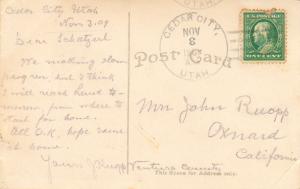 Cedar City Utah
Nov 3. 09
Dear Schatzerl
We making slow
progress, but I think
I will reach here to-
morrow, from where to
start for home.
All O.K. hope same
at home.
Yours J Ruopp
CEDAR CITY,
NOV
8
UTAH
UTAH.
U.S. POSTAGE
ONE CENT
Post Card
Mrs John Ruopp
Oxnard
Ventura County
California
This Space for Address only.